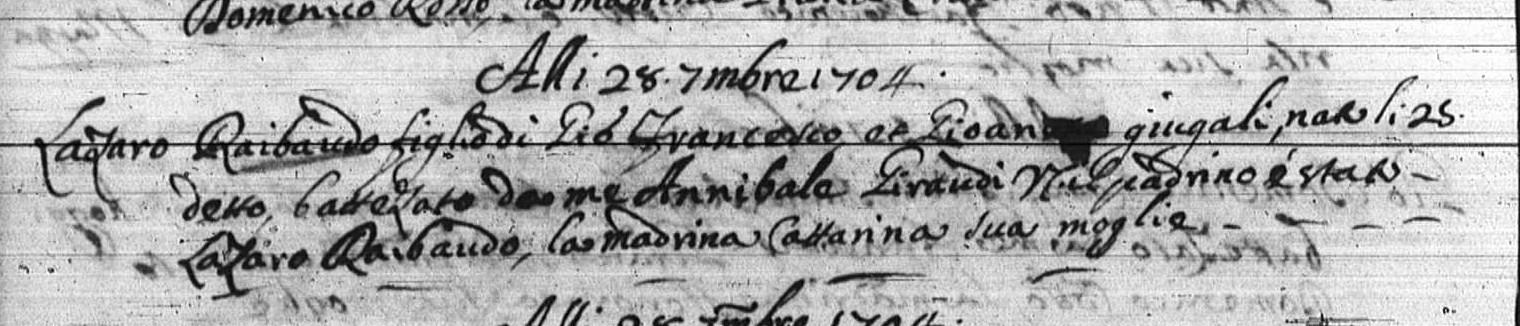 Domenico Rosso, la madrina
Alli 28. 7mbre 1704.
Lazaro Raibaudo figlio di Gio Francesco et Gioan giugali, nato li 25.
detto, battezato da me Annibale Giraudi il padrino è stato -
Lazaro Raibaudo, la madrina Cattarina sua moglie. - - -
Alli 28. 7mbre 1704.